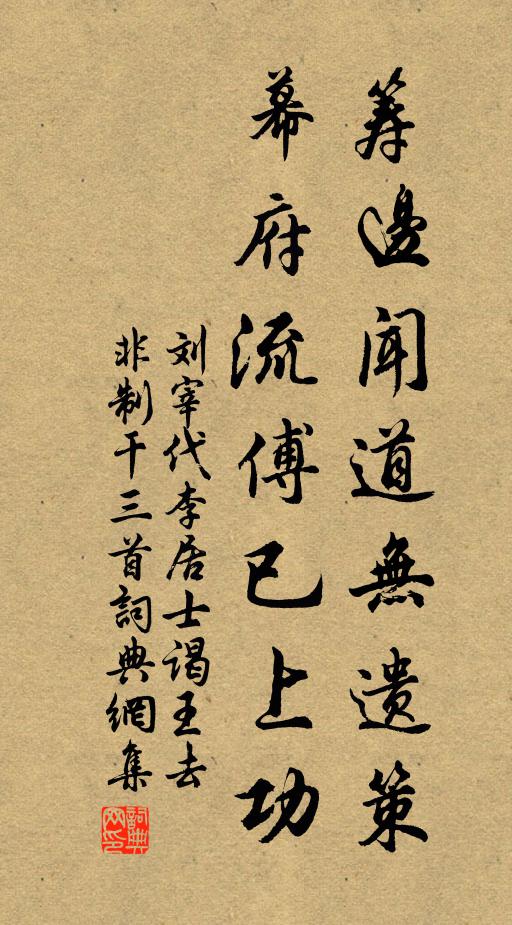 籌邊聞道無遺策
幕府流傅已上功
刘宰代李居士謁王去
非制干三首詞典網集
詞典網印